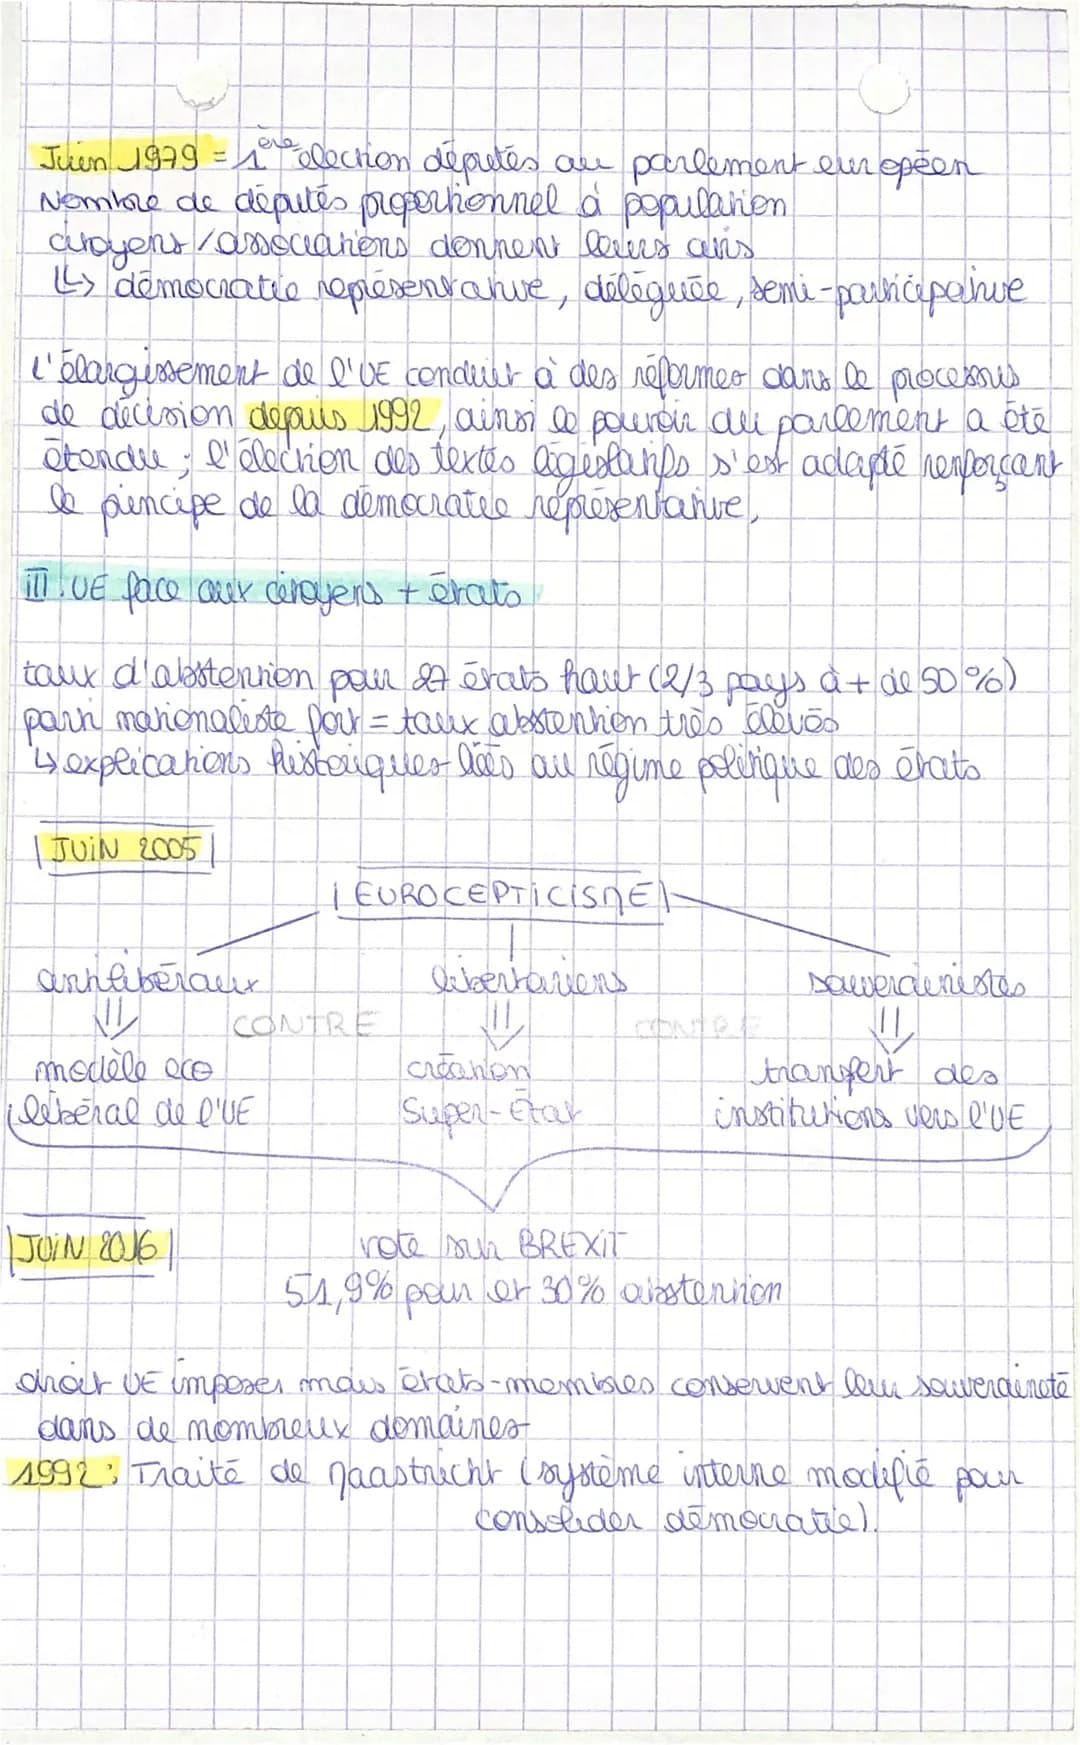 Juin 1979 = 1ère élection députés au parlement européen
Nombre de députés proportionnel à population
citoyens / associations donnent leurs avis
↳ démocratie représentative, déléguée, semi-participative
L'élargissement de l'UE conduit à des réformes dans le processus
de décision depuis 1992, ainsi le pouvoir du parlement a été
étendu ; l'élection des textes législatifs s'est adapté renforçant
le principe de la démocratie représentative,
III. UE face aux citoyens + états
taux d'abstention pour 27 états haut (2/3 pays à + de 50%)
parti nationaliste fort = taux abstention très élevés
↳ explications historiques liées au régime politique des états
JUIN 2005
EUROCEPTICISME
antilibéraux libertariens souverainistes
CONTRE CONTRE
modèle eco création transfert des
libéral de l'UE Super-État institutions vers l'UE
JUIN 2016 vote sur BREXIT
51,9% pour et 30% abstention
droit UE imposer mais états-membres conservent leur souveraineté
dans de nombreux domaines
1992 : Traité de Maastricht (système interne modifié pour
consolider démocratie).